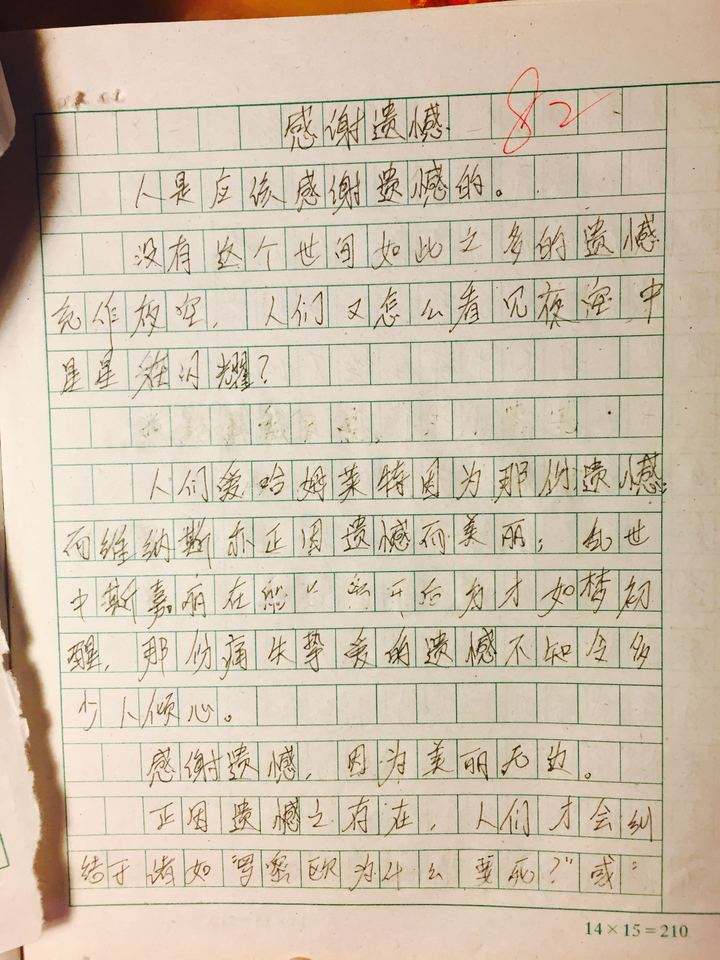 感谢遗憾
82
人是应该感谢遗憾的。
没有这个世间如此之多的遗憾
充作夜空，人们又怎么看见夜空中
星星在闪耀？
人们爱哈姆莱特因为那份遗憾；
而维纳斯亦正因遗憾而美丽；乱世
中斯嘉丽在 后 才如梦初
醒，那份痛失挚爱的遗憾不知令多
少人倾心。
感谢遗憾，因为美丽无边。
正因遗憾之存在，人们才会纠
结于诸如“罗密欧为什么要死？”或“
14×15=210